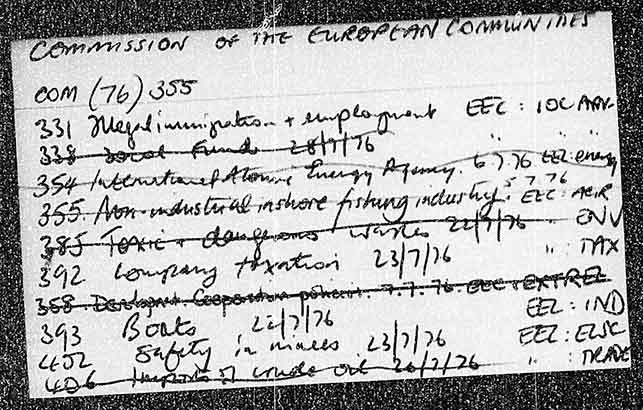 COMMISSION OF THE EUROPEAN COMMUNITIES
COM (76) 355
331 Illegal immigration + employment EEC : SOC AFF
338 Social Funds 28/7/76 " "
354 International Atomic Energy Agency. 6.7.76 EEC: energy
355. Non-industrial inshore fishing industry. 5.7.76 EEC: AGR
385 Toxic + dangerous wastes 22/7/76 . ENV
392 Company taxation 23/7/76 " : TAX
368 Development Cooperation 7.7.76. EEC: EXT REL
393 Boats 22/7/76 EEC : IND
402 Safety in mines 23/7/76 EEC:
406 Imports of crude oil 26/7/76 " : TRADE